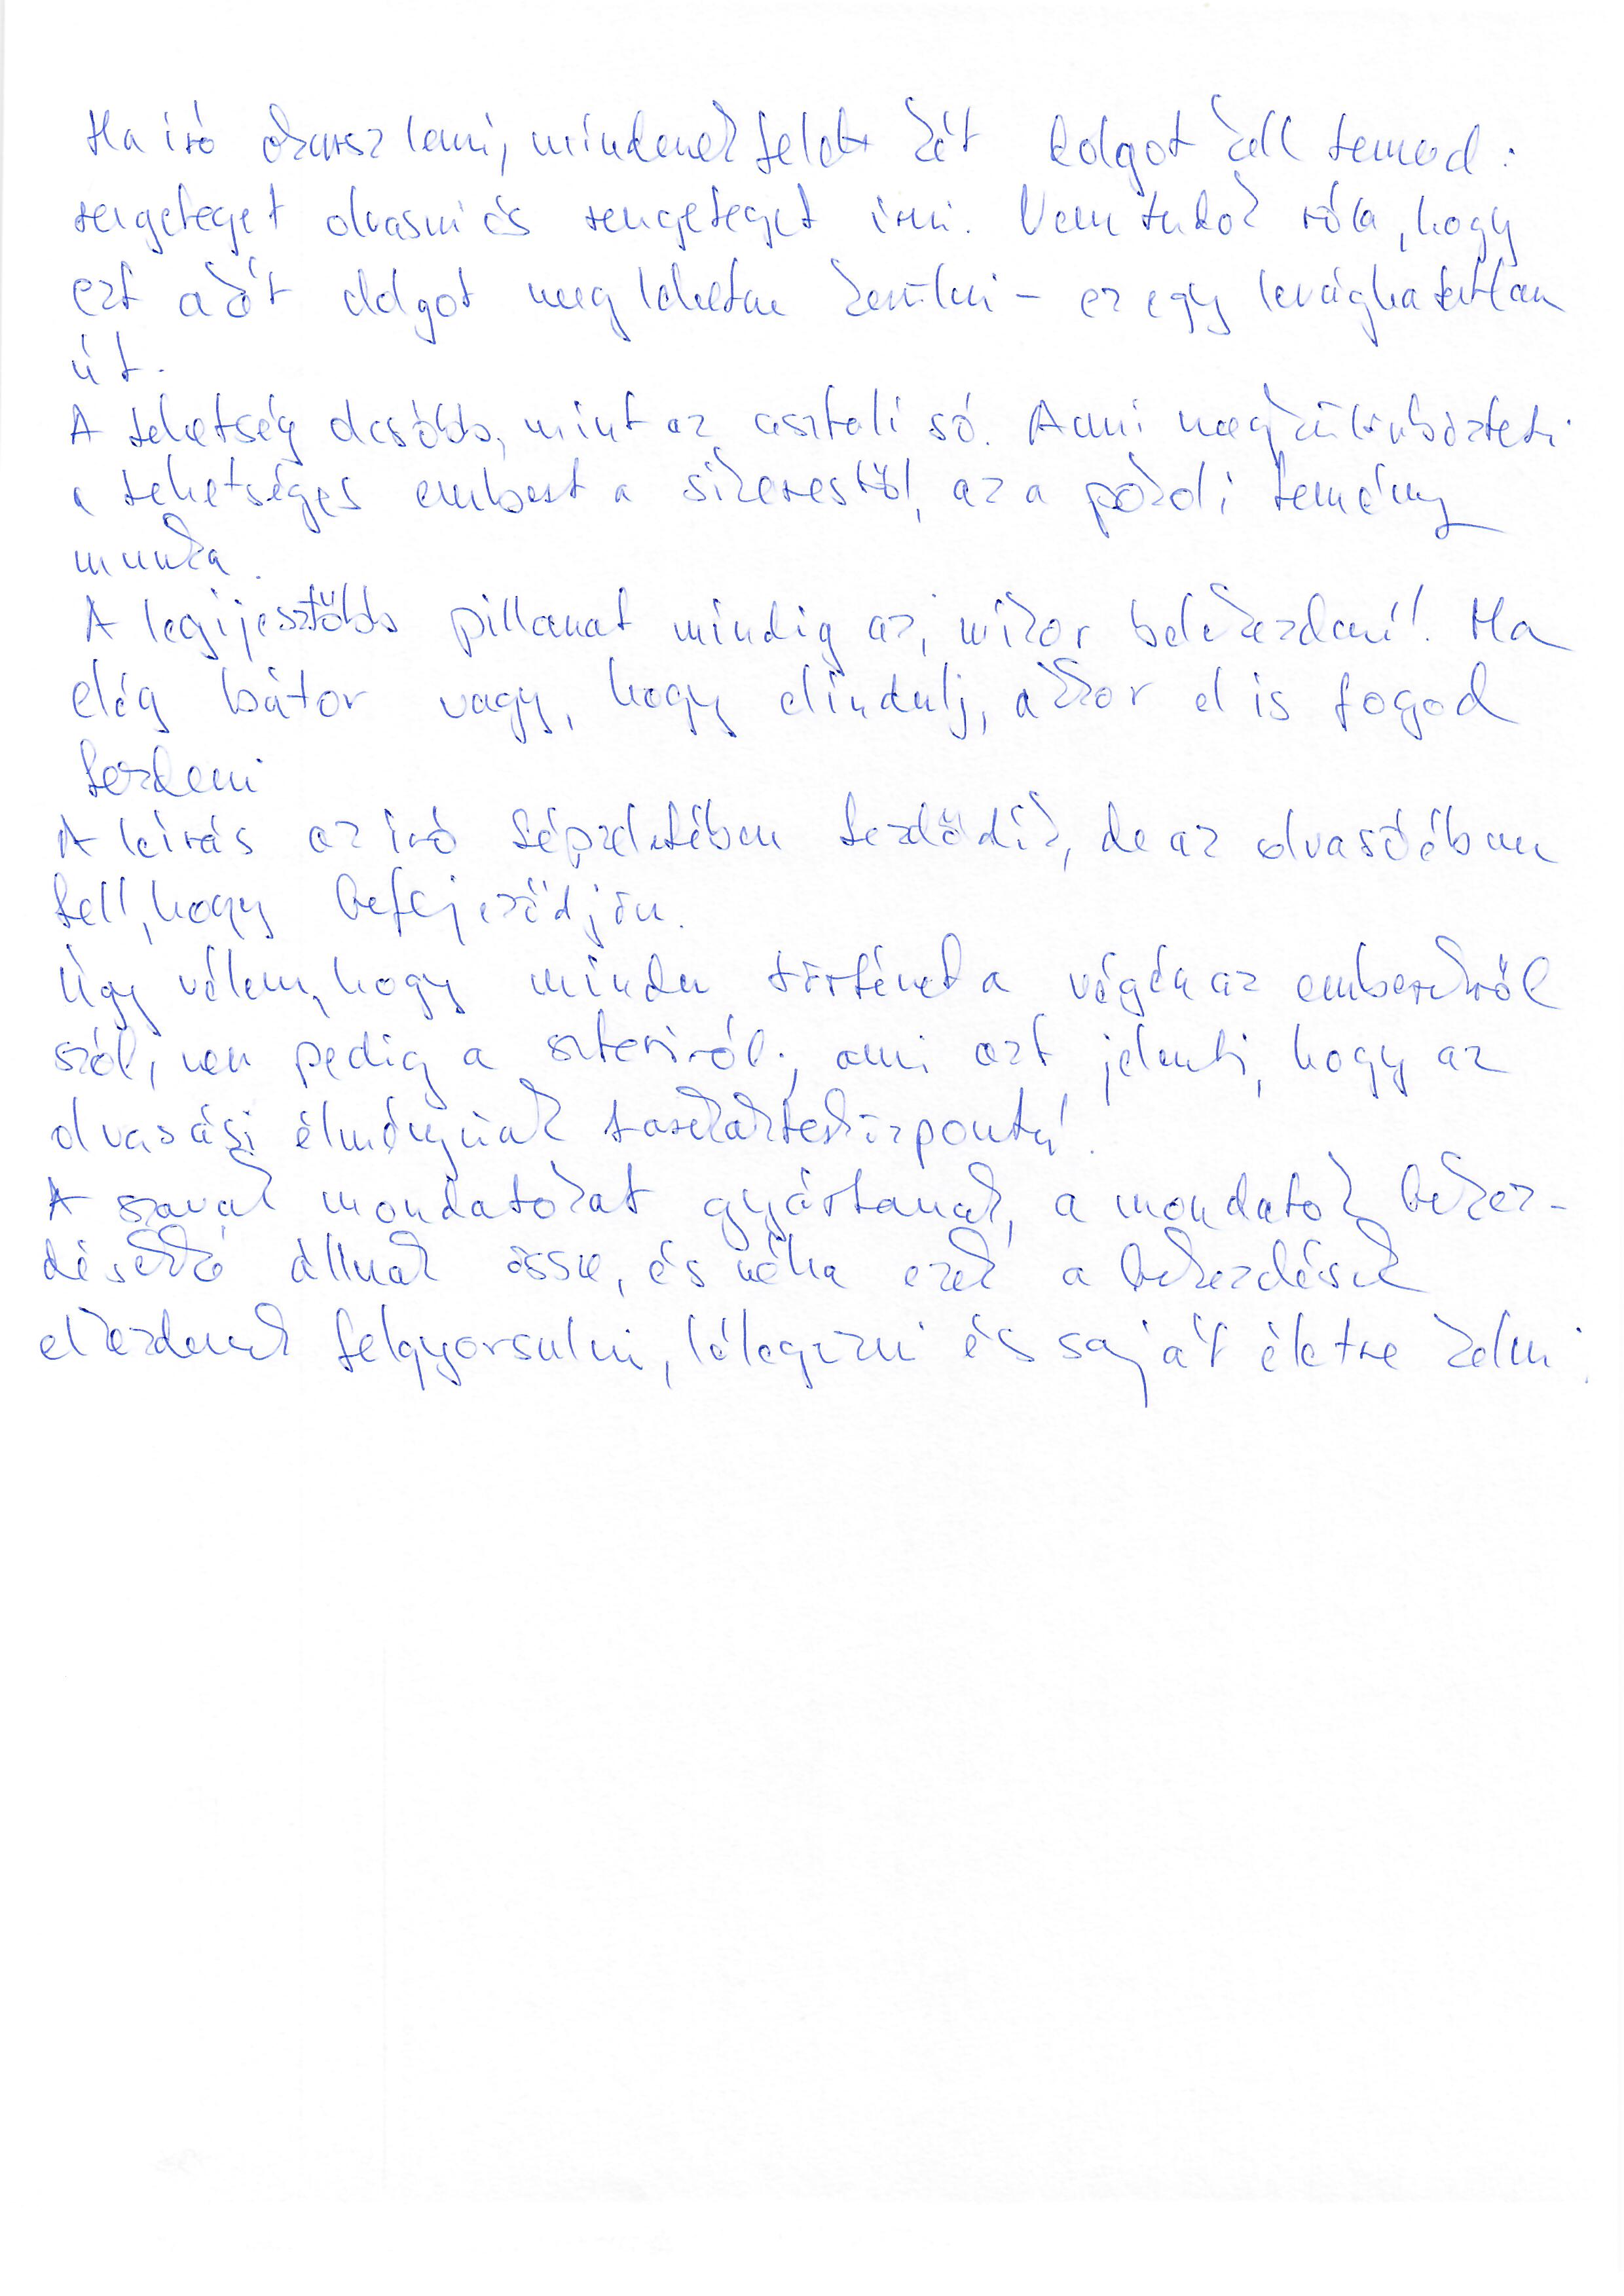 Ha író akarsz lenni, mindenek felett két dolgot kell tenned:
rengeteget olvasni és rengeteget írni. Nem tudok róla, hogy
ezt a két dolgot meg lehetne kerülni – ez egy levághatatlan
út.
A tehetség olcsóbb, mint az asztali só. Ami megkülönbözteti
a tehetséges embert a sikerestől, az a pokoli kemény
munka.
A legijesztőbb pillanat mindig az, mikor belekezdeni! Ha
elég bátor vagy, hogy elindulj, akkor el is fogod
kezdeni
A leírás az író képzeletében kezdődik, de az olvasóéban
kell, hogy befejeződjön.
Úgy vélem, hogy minden történet a végén az emberekről
szól, nem pedig a sztoriról; ami azt jelenti, hogy az
olvasási élményünk karakterközpontú!
A szavak mondatokat gyártanak, a mondatok bekez-
désekké állnak össze, és néha ezek a bekezdések
elkezdenek felgyorsulni, lélegezni és saját életre kelni.